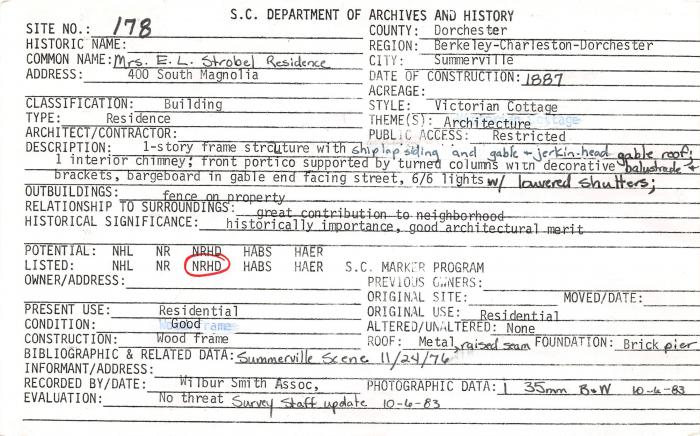 S.C. DEPARTMENT OF ARCHIVES AND HISTORY
SITE NO.: 178 COUNTY: Dorchester
HISTORIC NAME: REGION: Berkeley-Charleston-Dorchester
COMMON NAME: Mrs. E. L. Strobel Residence CITY: Summerville
ADDRESS: 400 South Magnolia DATE OF CONSTRUCTION: 1887
ACREAGE:
CLASSIFICATION: Building STYLE: Victorian Cottage
TYPE: Residence THEME(S): Architecture
ARCHITECT/CONTRACTOR: PUBLIC ACCESS: Restricted
DESCRIPTION: 1-story frame strcuture with shiplap siding and gable + jerkin-head gable roof;
1 interior chimney; front portico supported by turned columns with decorative balustrade +
brackets, bargeboard in gable end facing street, 6/6 lights w/ louvered shutters;
OUTBUILDINGS: fence on property
RELATIONSHIP TO SURROUNDINGS: great contribution to neighborhood
HISTORICAL SIGNIFICANCE: historically importance, good architectural merit
POTENTIAL: NHL NR NRHD HABS HAER
LISTED: NHL NR NRHD HABS HAER S.C. MARKER PROGRAM
OWNER/ADDRESS: PREVIOUS OWNERS:
ORIGINAL SITE: MOVED/DATE:
PRESENT USE: Residential ORIGINAL USE: Residential
CONDITION: Good ALTERED/UNALTERED: None
CONSTRUCTION: Wood frame ROOF: Metal, raised seam FOUNDATION: Brick pier
BIBLIOGRAPHIC & RELATED DATA: Summerville Scene 11/24/76
INFORMANT/ADDRESS:
RECORDED BY/DATE: Wilbur Smith Assoc, PHOTOGRAPHIC DATA: 1 35mm B+W 10-6-83
EVALUATION: No threat Survey Staff update 10-6-83